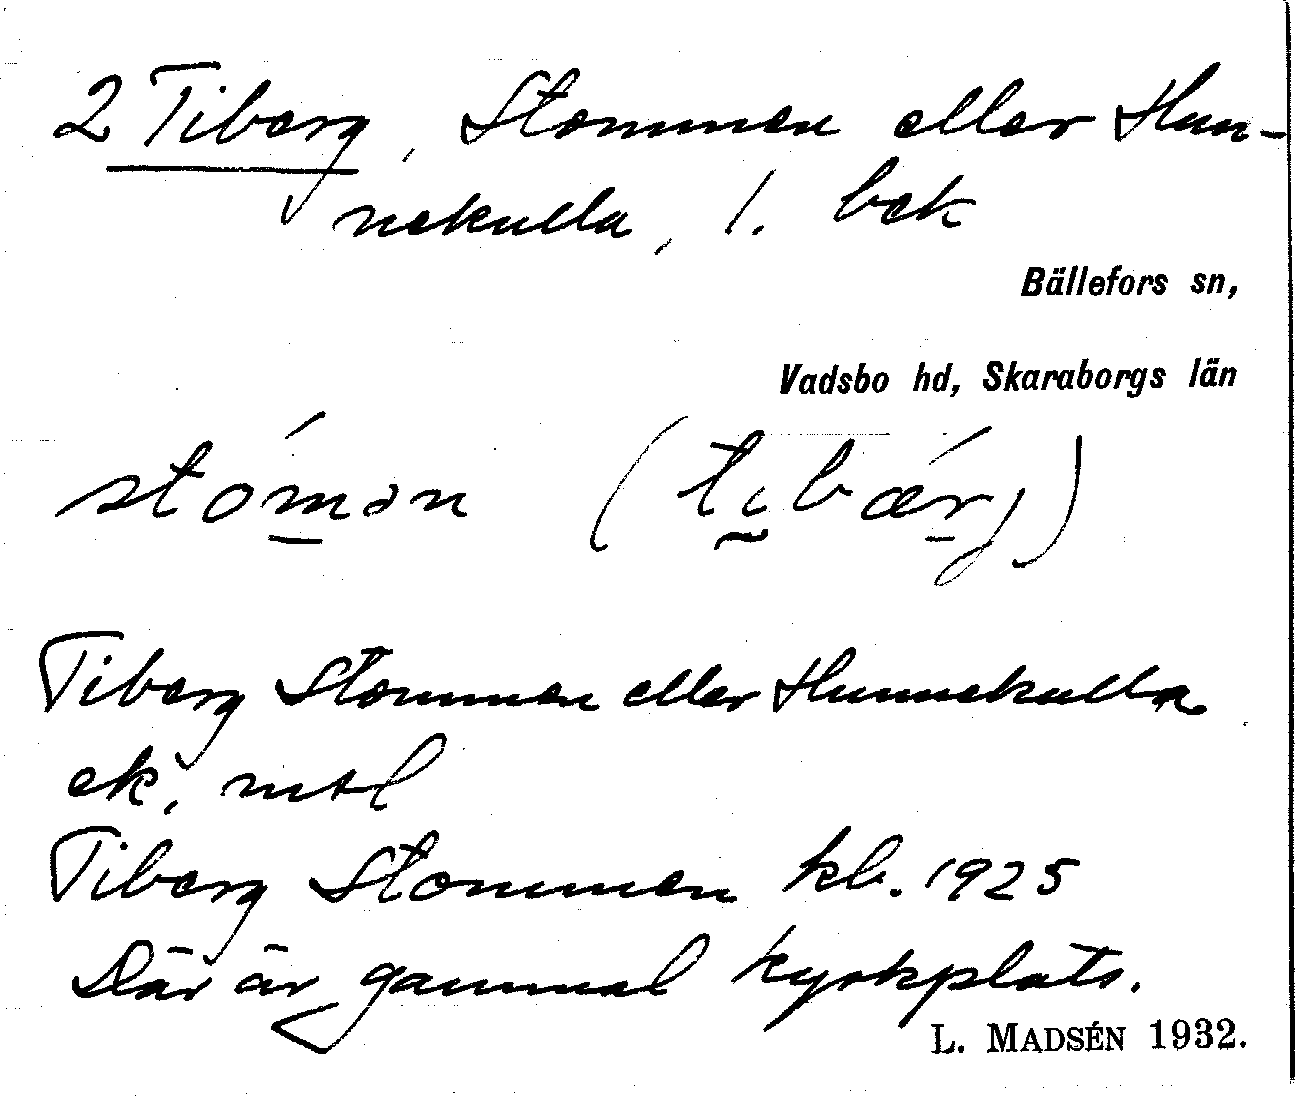 2 Tiberg, Stommen eller Hun-
nekulla, l. bek
Bällefors sn,
Vadsbo hd, Skaraborgs län
stómən (tibǽrj)
Tiberg Stommen eller Hunnekulla
ek, mtl
Tiberg Stommen kb. 1925
Där är gammal kyrkplats.
L. MADSÉN 1932.